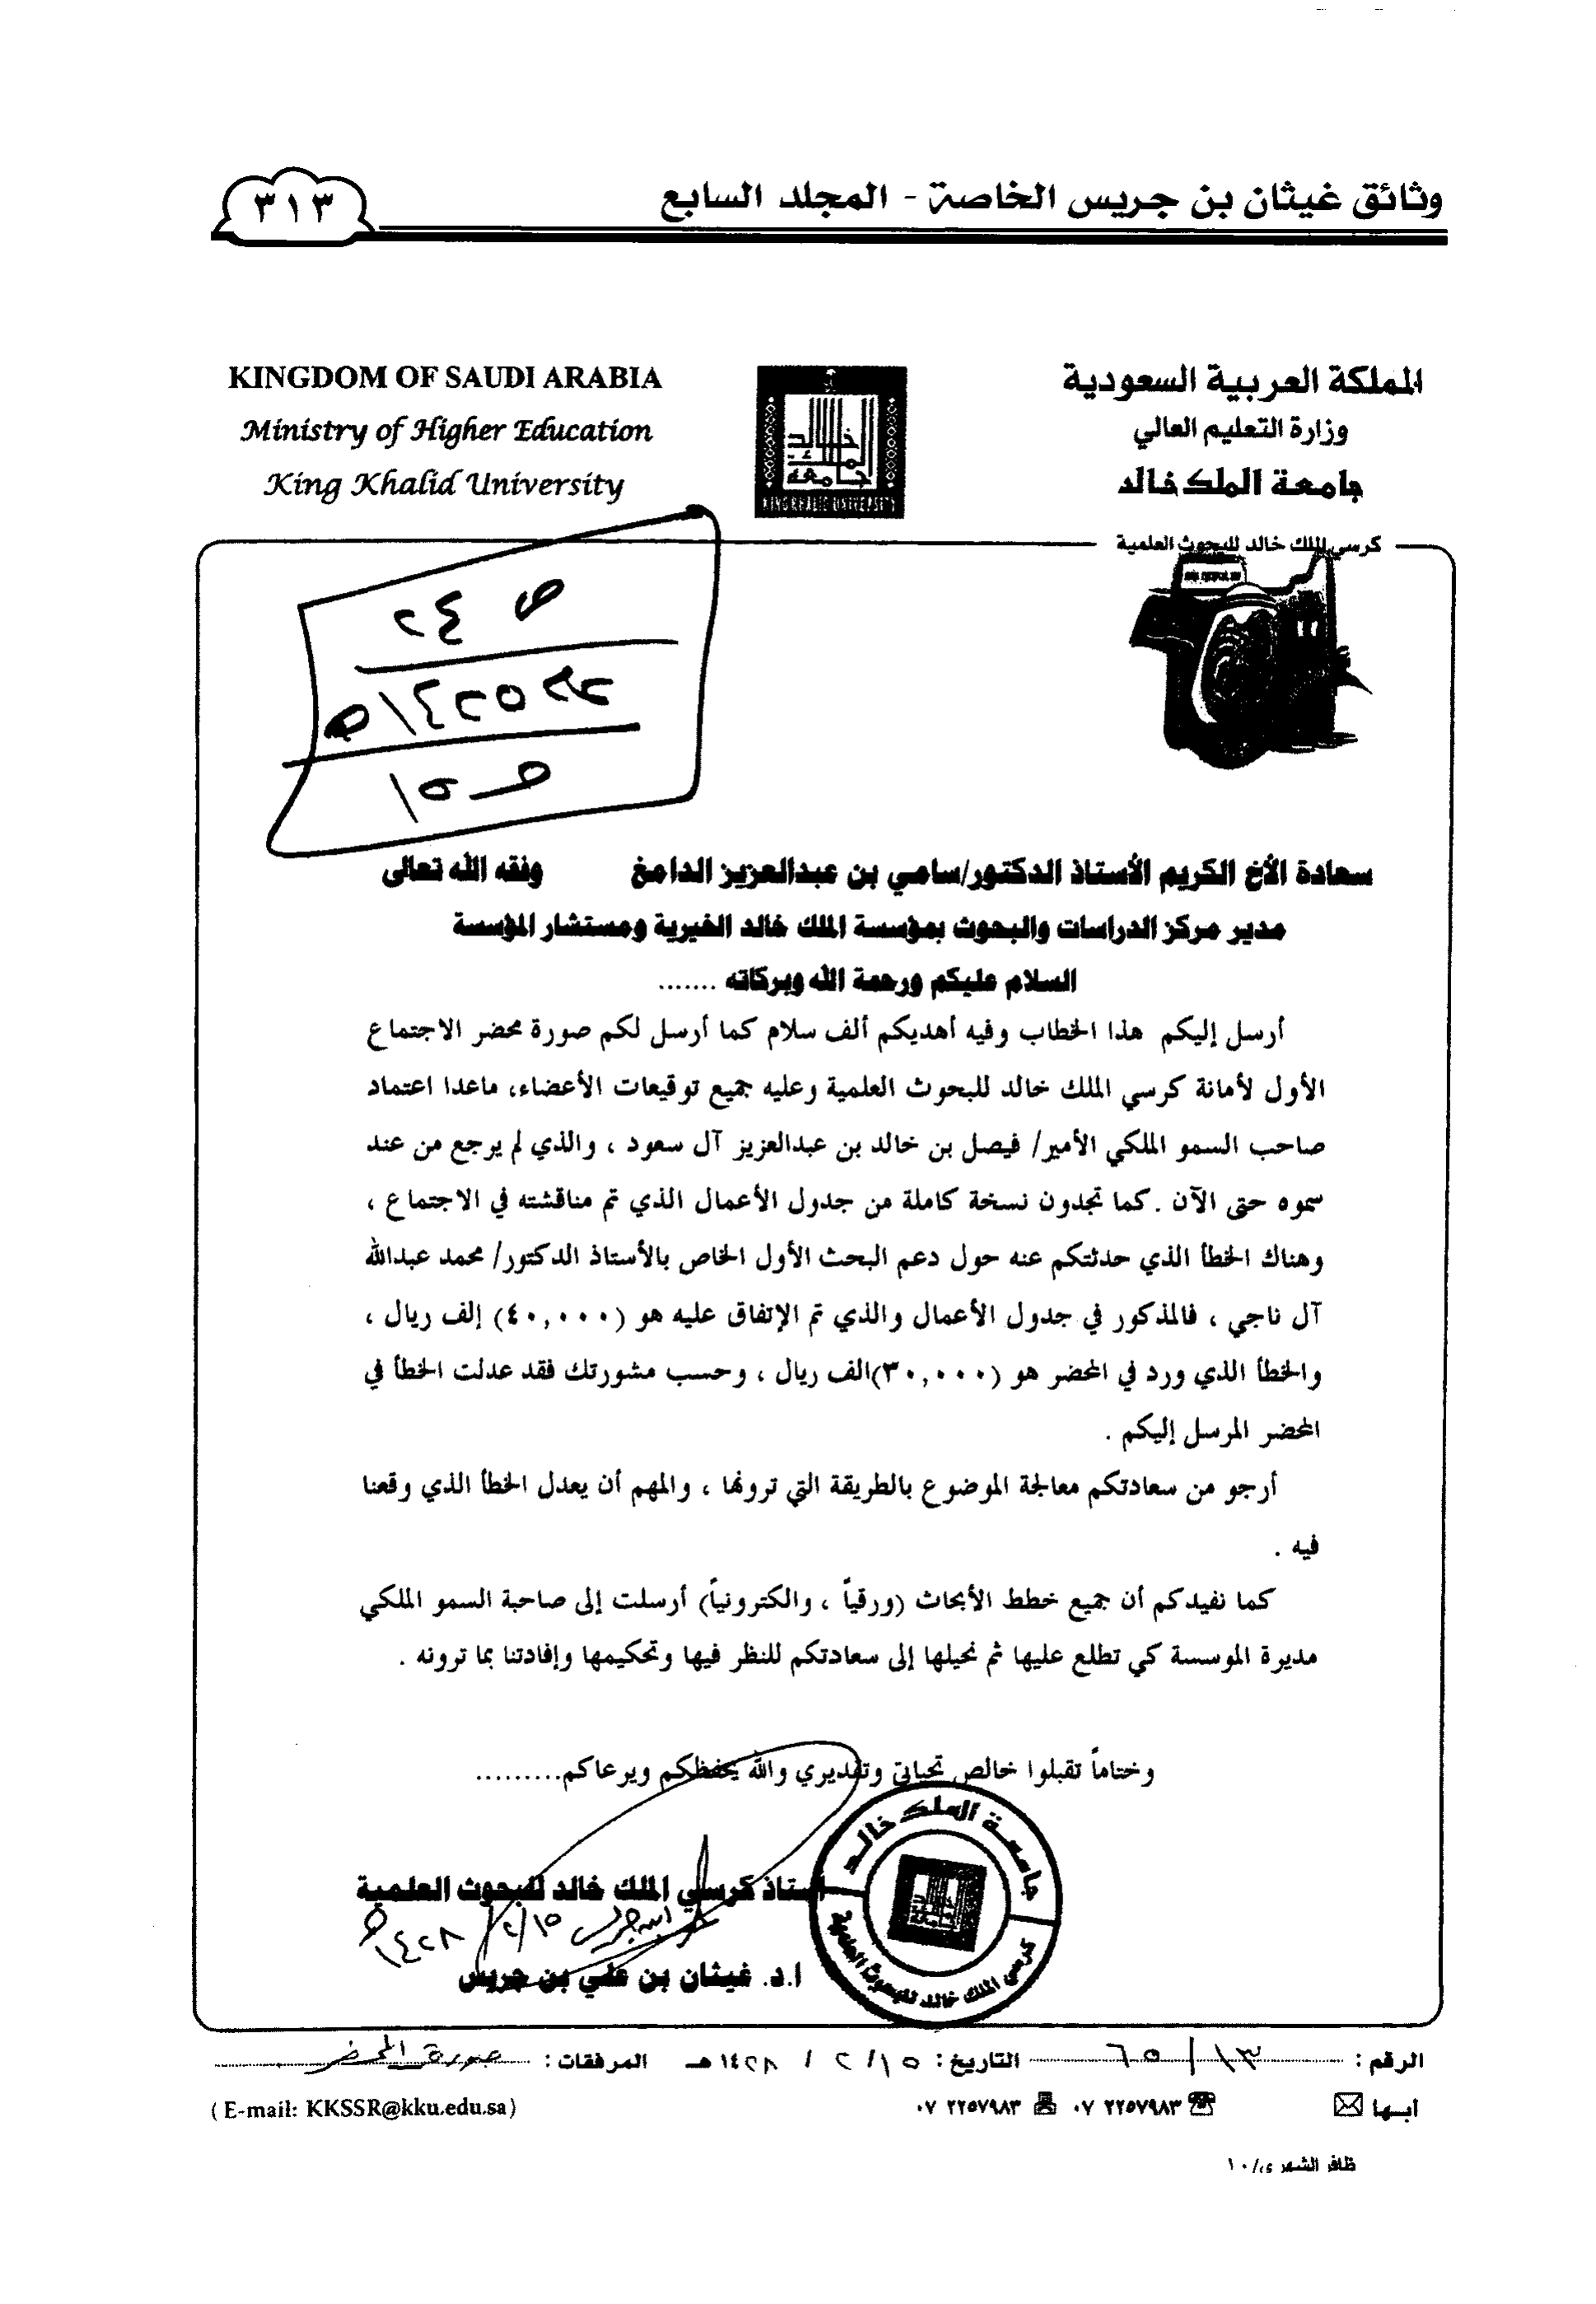 وثائق غيثان بن جريس الخاصة - المجلد السابع
٣١٣
المملكة العربية السعودية
وزارة التعليم العالي
جامعة الملك خالد
KINGDOM OF SAUDI ARABIA
Ministry of Higher Education
King Khalid University
خالد
الملك
جامعة
KING KHALID UNIVERSITY
كرسي الملك خالد للبحوث العلمية
سعادة الأخ الكريم الأستاذ الدكتور/سامي بن عبدالعزيز الدامغ وفقه الله تعالى
مدير مركز الدراسات والبحوث بمؤسسة الملك خالد الخيرية ومستشار المؤسسة
السلام عليكم ورحمة الله وبركاته .......
أرسل إليكم هذا الخطاب وفيه أهديكم ألف سلام كما أرسل لكم صورة محضر الاجتماع
الأول لأمانة كرسي الملك خالد للبحوث العلمية وعليه جميع توقيعات الأعضاء، ماعدا اعتماد
صاحب السمو الملكي الأمير/ فيصل بن خالد بن عبدالعزيز آل سعود ، والذي لم يرجع من عند
سموه حتى الآن . كما تجدون نسخة كاملة من جدول الأعمال الذي تم مناقشته في الاجتماع ،
وهناك الخطأ الذي حدثتكم عنه حول دعم البحث الأول الخاص بالأستاذ الدكتور/ محمد عبدالله
آل ناجي ، فالمذكور في جدول الأعمال والذي تم الإتفاق عليه هو (٤٠,٠٠٠) إلف ريال ،
والخطأ الذي ورد في المحضر هو (٣٠,٠٠٠)الف ريال ، وحسب مشورتك فقد عدلت الخطأ في
المحضر المرسل إليكم .
أرجو من سعادتكم معالجة الموضوع بالطريقة التي ترونها ، والمهم أن يعدل الخطأ الذي وقعنا
فيه .
كما نفيدكم أن جميع خطط الأبحاث (ورقياً ، والكترونياً) أرسلت إلى صاحبة السمو الملكي
مديرة الموسسة كي تطلع عليها ثم نحيلها إلى سعادتكم للنظر فيها وتحكيمها وإفادتنا بما ترونه .
وختاماً تقبلوا خالص تحياتي وتقديري والله يحفظكم ويرعاكم.........
أستاذ كرسي الملك خالد للبحوث العلمية
ابن جريس ١٥/٢/١٤٢٨هـ
ا.د. غيثان بن علي بن جريس
جامعة الملك خالد
كرسي الملك خالد للبحوث العلمية
الرقم : ١٣/٦٥ التاريخ : ١٥/ ٢ / ١٤٢٨ هـ المرفقات : صورة المحضر
أبها ٠٧ ٢٢٥٧٩٨٣ ٠٧ ٢٢٥٧٩٨٣ (E-mail: KKSSR@kku.edu.sa)
ظافر الشهري/١٠